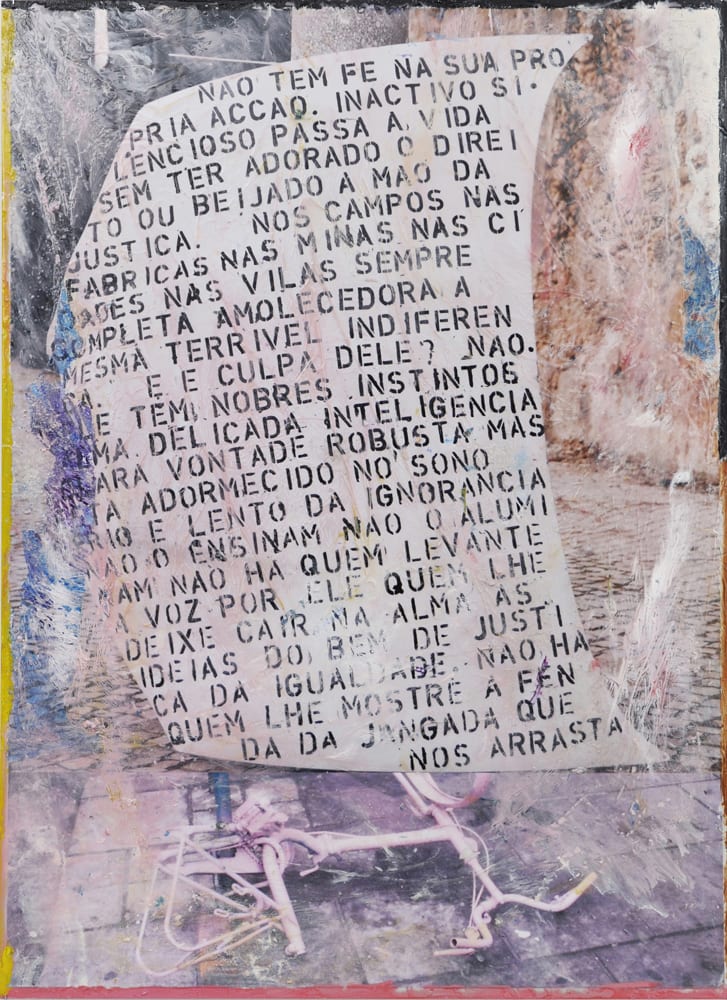 NAO TEM FE NA SUA PRO
PRIA ACCAO. INACTIVO SI.
LENCIOSO PASSA A VIDA
SEM TER ADORADO O DIREI
TO OU BEIJADO A MAO DA
JUSTICA. NOS CAMPOS NAS
FABRICAS NAS MINAS NAS CI
DADES NAS VILAS SEMPRE
COMPLETA AMOLECEDORA A
MESMA TERRIVEL INDIFEREN
CA. E E CULPA DELE? NAO.
E TEM NOBRES INSTINTOS
MA DELICADA INTELIGENCIA
ARA VONTADE ROBUSTA MAS
TA ADORMECIDO NO SONO
RIO E LENTO DA IGNORANCIA
NAO O ENSINAM NAO O ALUMI
AM NAO HA QUEM LEVANTE
A VOZ POR ELE QUEM LHE
DEIXE CAIR NA ALMA AS
IDEIAS DO BEM DE JUSTI
CA DA IGUALDADE. NAO HA
QUEM LHE MOSTRE A FEN
DA DA JANGADA QUE
NOS ARRASTA